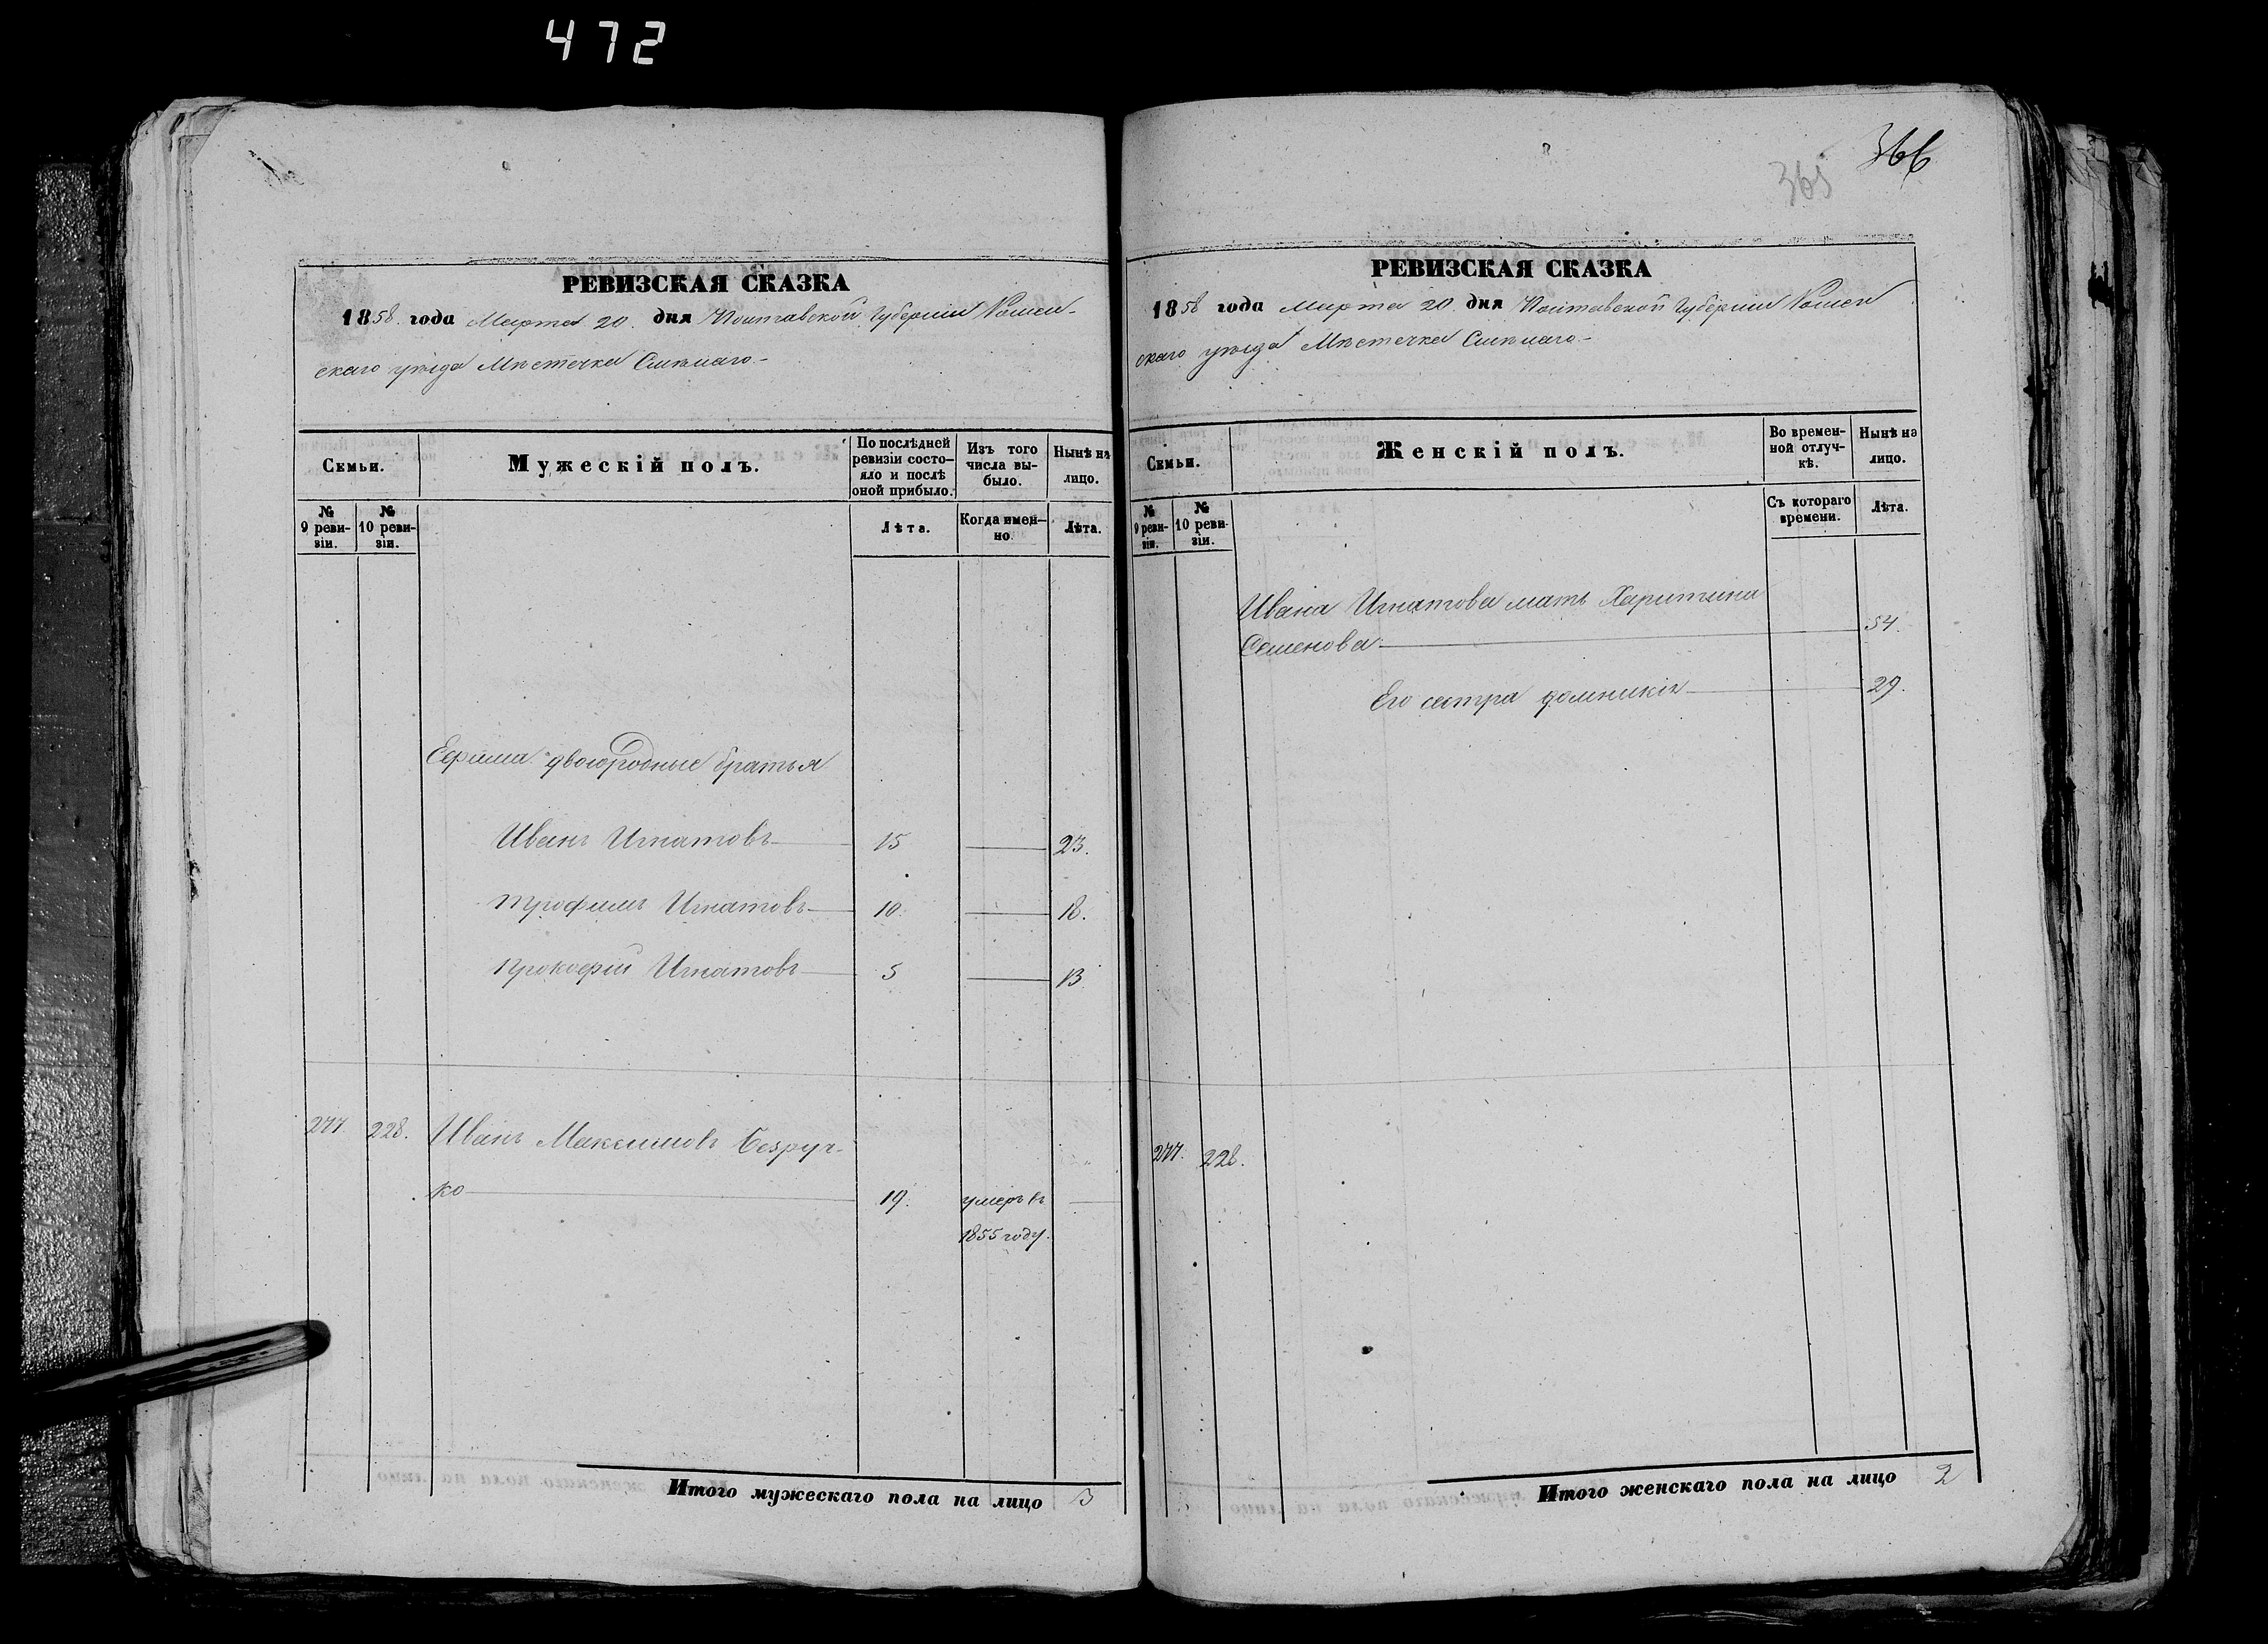 472
РЕВИЗСКАЯ СКАЗКА
1858. года Марта 20. дня Полтавской Губернiи Ромен-
скаго уѣзда Мѣстечка Смѣлаго.-
Семьи.
Мужескій полъ.
По послѣдней
ревизіи состо-
яло и послѣ
оной прибыло.
Изъ того
числа вы-
было.
Нынѣ на
лицо.
№
9 реви-
зіи.
№
10 реви-
зіи.
Лѣта.
Когда имен-
но
Лѣта.
Ефима двоюродные братья
Иванъ Игнатовъ 15 23.
Трофимъ Игнатовъ 10 18.
Прокофій Игнатовъ 5 13.
277. 228. Иванъ Максимовъ Безруч-
ко 19. умеръ въ
1855 году.
Итого мужескаго пола на лицо 3
365 366
РЕВИЗСКАЯ СКАЗКА
1858 года Марта 20. дня Полтавской Губерніи Ромен
скаго уѣзда Мѣстечка Смѣлаго.-
Семьи.
Женскій полъ.
Во времен-
ной отлуч-
кѣ.
Нынѣ на
лицо.
№
9 реви-
зіи.
№
10 реви-
зіи.
Съ котораго
времени.
Лѣта.
Ивана Игнатова мать Харитина
Семенова 54.
Его сестра Домникія 29.
277. 228.
Итого женскаго пола на лицо 2